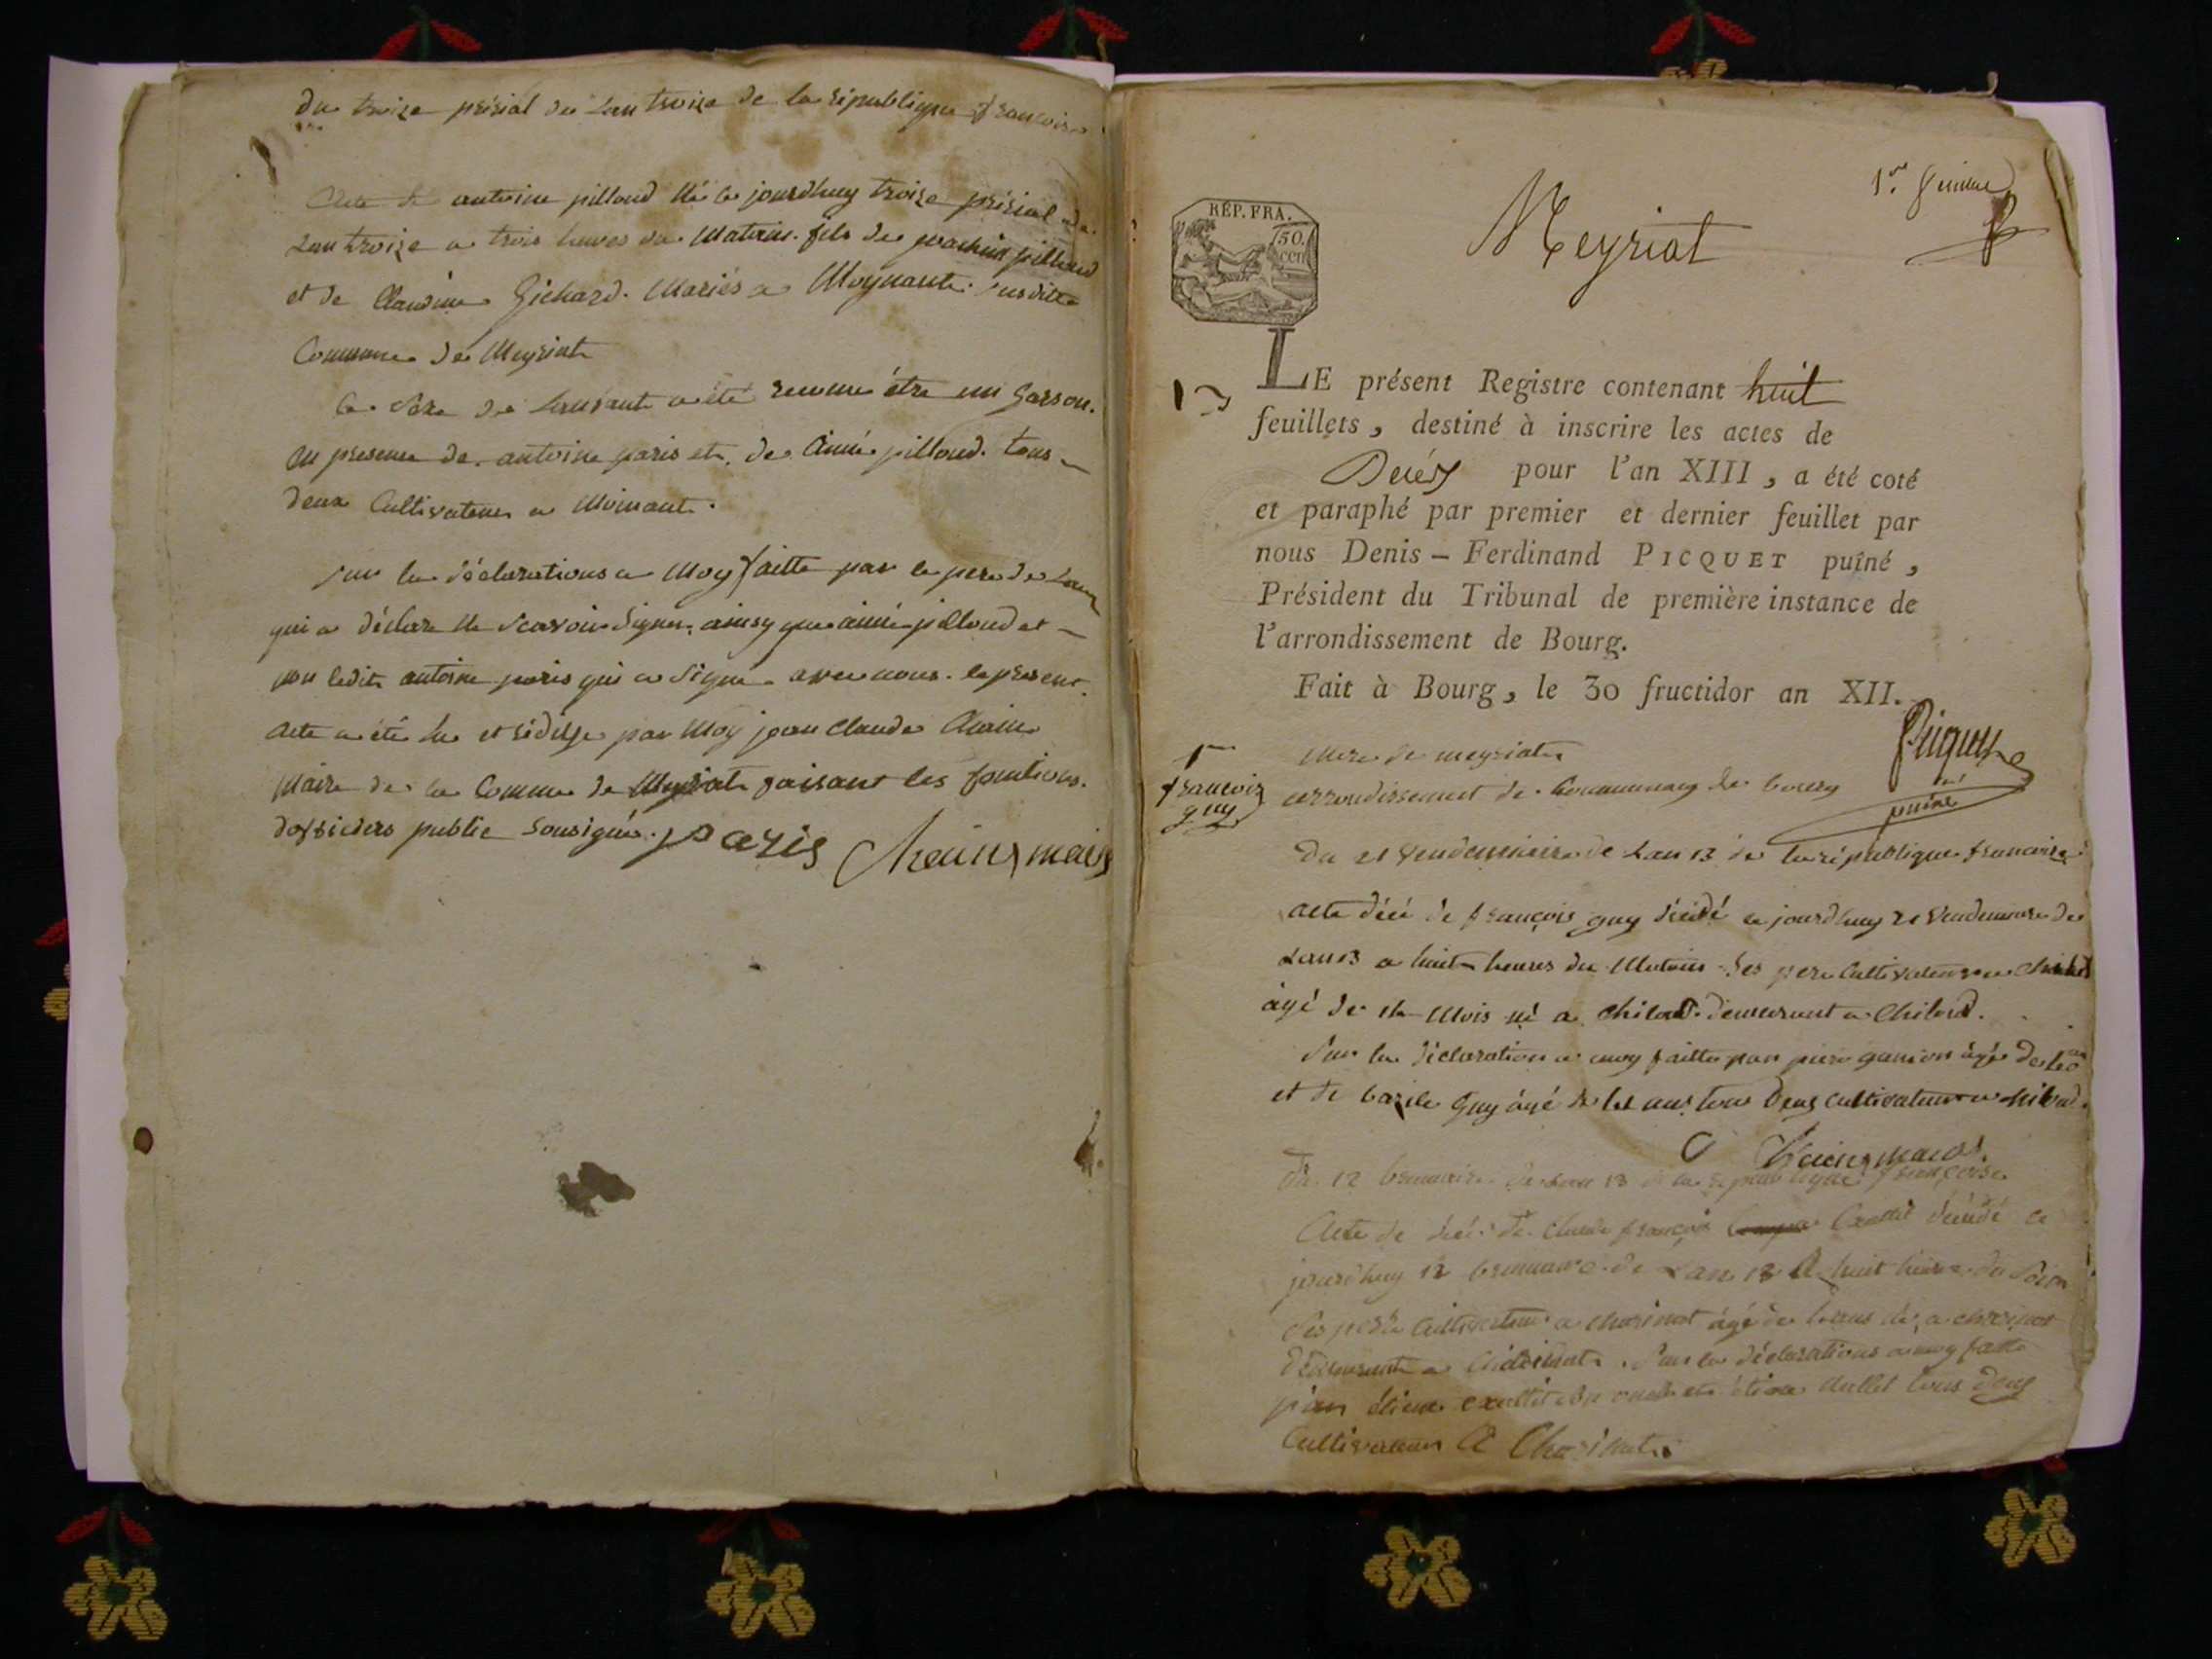 du treize prérial de Lan treize de la république francoise
Acte de antoine pilloud né ce jourdhuy treize prérial de
Lan treize a trois heures du Matein. fils de joachim pilloud
et de Claudine Gichard. Mariés a Moynant. susditte
Commune de Meyriat
le sexe de Lenfant a été reconnu étre un garson.
en presence de. antoine paris et. de aimé pilloud. tous
deux Cultivateurs a Moinant.
sur la déclarations a Moy faitte par le pere de Lenf
qui a déclaré ne scavoir signer. ainsy que aimé pilloud et
non ledit antoine paris qui a signé avec nous. le present
acte a été lu et rédigé par Moy jean Claude Chaine
Maire de la Comune de Meyriat faisant les fontions.
dofficiers public sousignés. paris Chaine maire
1er feuillet
Meyriat
RÉP. FRA.
50. cen
LE présent Registre contenant huit
feuillets, destiné à inscrire les actes de
Décés pour l'an XIII, a été coté
et paraphé par premier et dernier feuillet par
nous Denis – Ferdinand PICQUET puîné,
Président du Tribunal de première instance de
l'arrondissement de Bourg.
Fait à Bourg, le 30 fructidor an XII.
Picquet
puiné
francois
guy
mere de meyriat
arrondissement de. bourg
Du 21 Vendemiaire de Lan 13 de la république francoise
acte décé de françois guy décédé ce jourdhuy 21 Vendemiaire de
Lan 13 a huit heures du Matein ses pere Cultivateur a Chilod
àgé de Mois né a Chilod. demeurant a Chilod.
Sur la déclaration a moy faitte par piere ganion àgé de
et de bazile Guy àgé de ans tous deux cultivateurs a Chilod.
Chaine maire.
Du 12 brumaire de Lan 13 de la république françoise
Acte de décé de Claude françois décédé ce
jourdhuy 12 brumaire de Lan 13 A huit heure du Soire
ses pere Cultivateur a Charinat àgé de né a Charinat
demeurant a Charinat. Sur la déclarations a moy faitte
par étiene et étiene tous deux
Cultivateurs A Charinat.